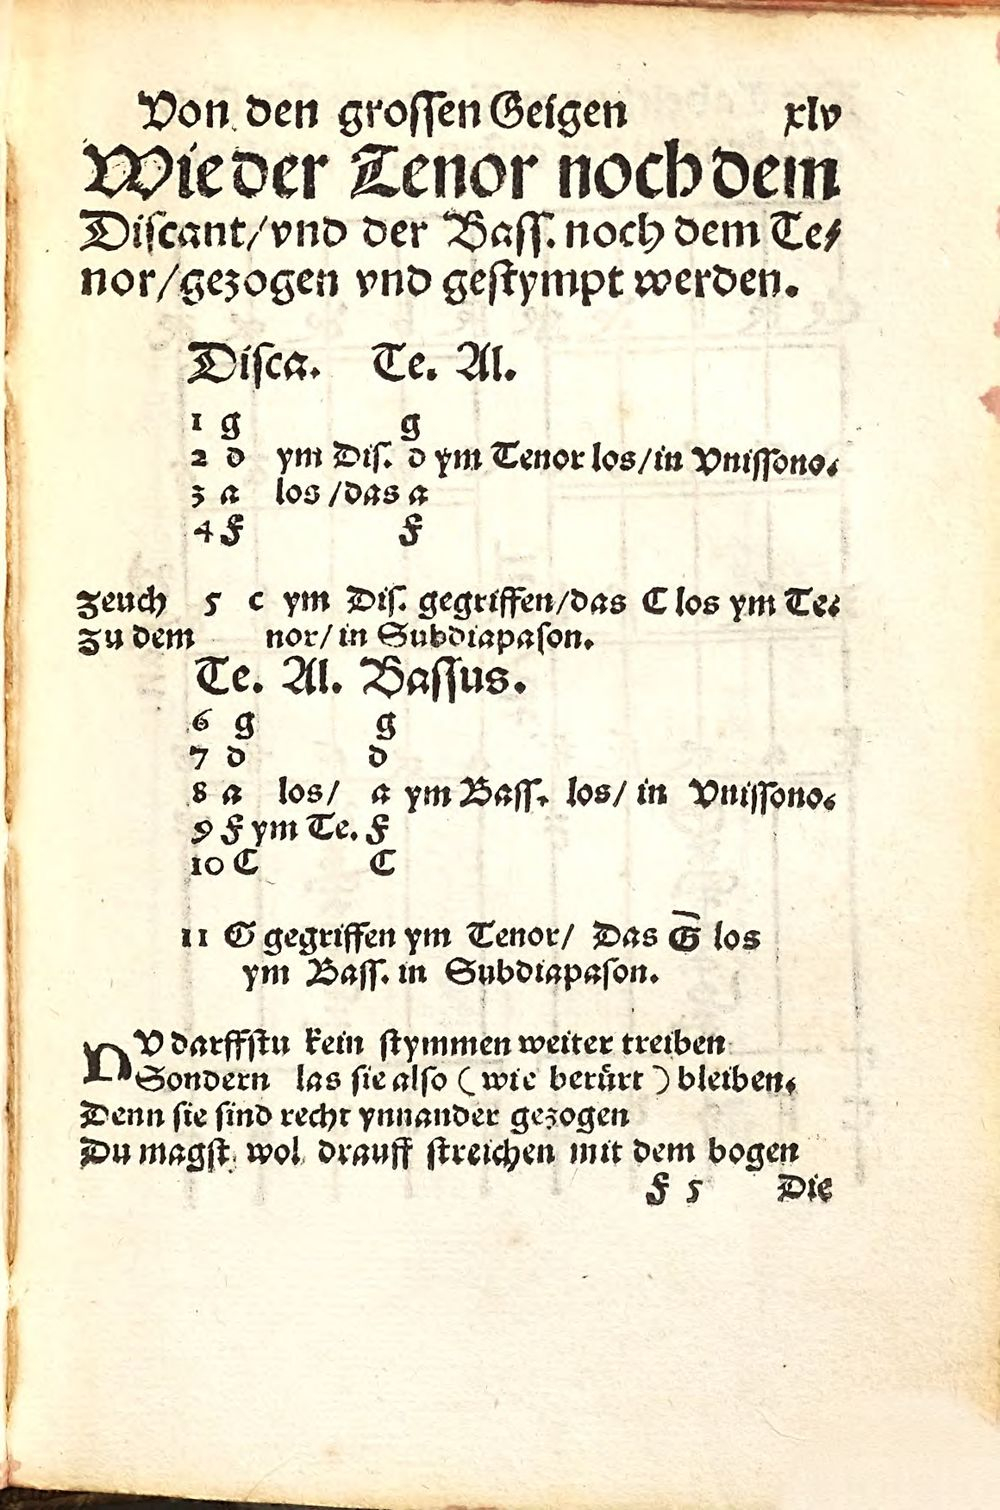 Von den groſſen Geigen xlv
Wie der Tenor noch dem
Diſcant/vnd der Baſſ. noch dem Te⸗
nor/gezogen vnd geſtympt werden.
Diſca. Te. Al.
1 g g
2 d ym Diſ. d ym Tenor los/in Vniſſono.
3 a los/das a
4 F F
zeuch 5 c ym Diſ. gegriffen/das C los ym Te⸗
zu dem nor/in Subdiapaſon.
Te. Al. Baſſus.
6 g g
7 d d
8 a los/ a ym Baſſ. los/ in Vniſſono.
9 F ym Te. F
10 C C
11 G gegriffen ym Tenor/ Das G̅ los
ym Baſſ. in Subdiapaſon.
NV darffſtu kein ſtymmen weiter treiben
Sondern las ſie alſo ( wie berürt ) bleiben.
Denn ſie ſind recht ynnander gezogen
Du magſt wol drauff ſtreichen mit dem bogen
F 5 Die